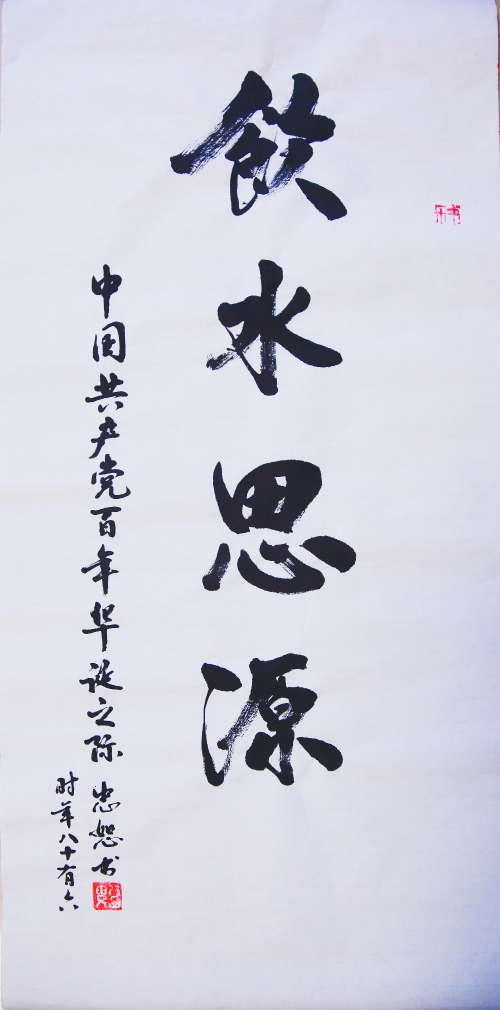 飲水思源
中国共产党百年华诞之际 忠恕书
时年八十有六